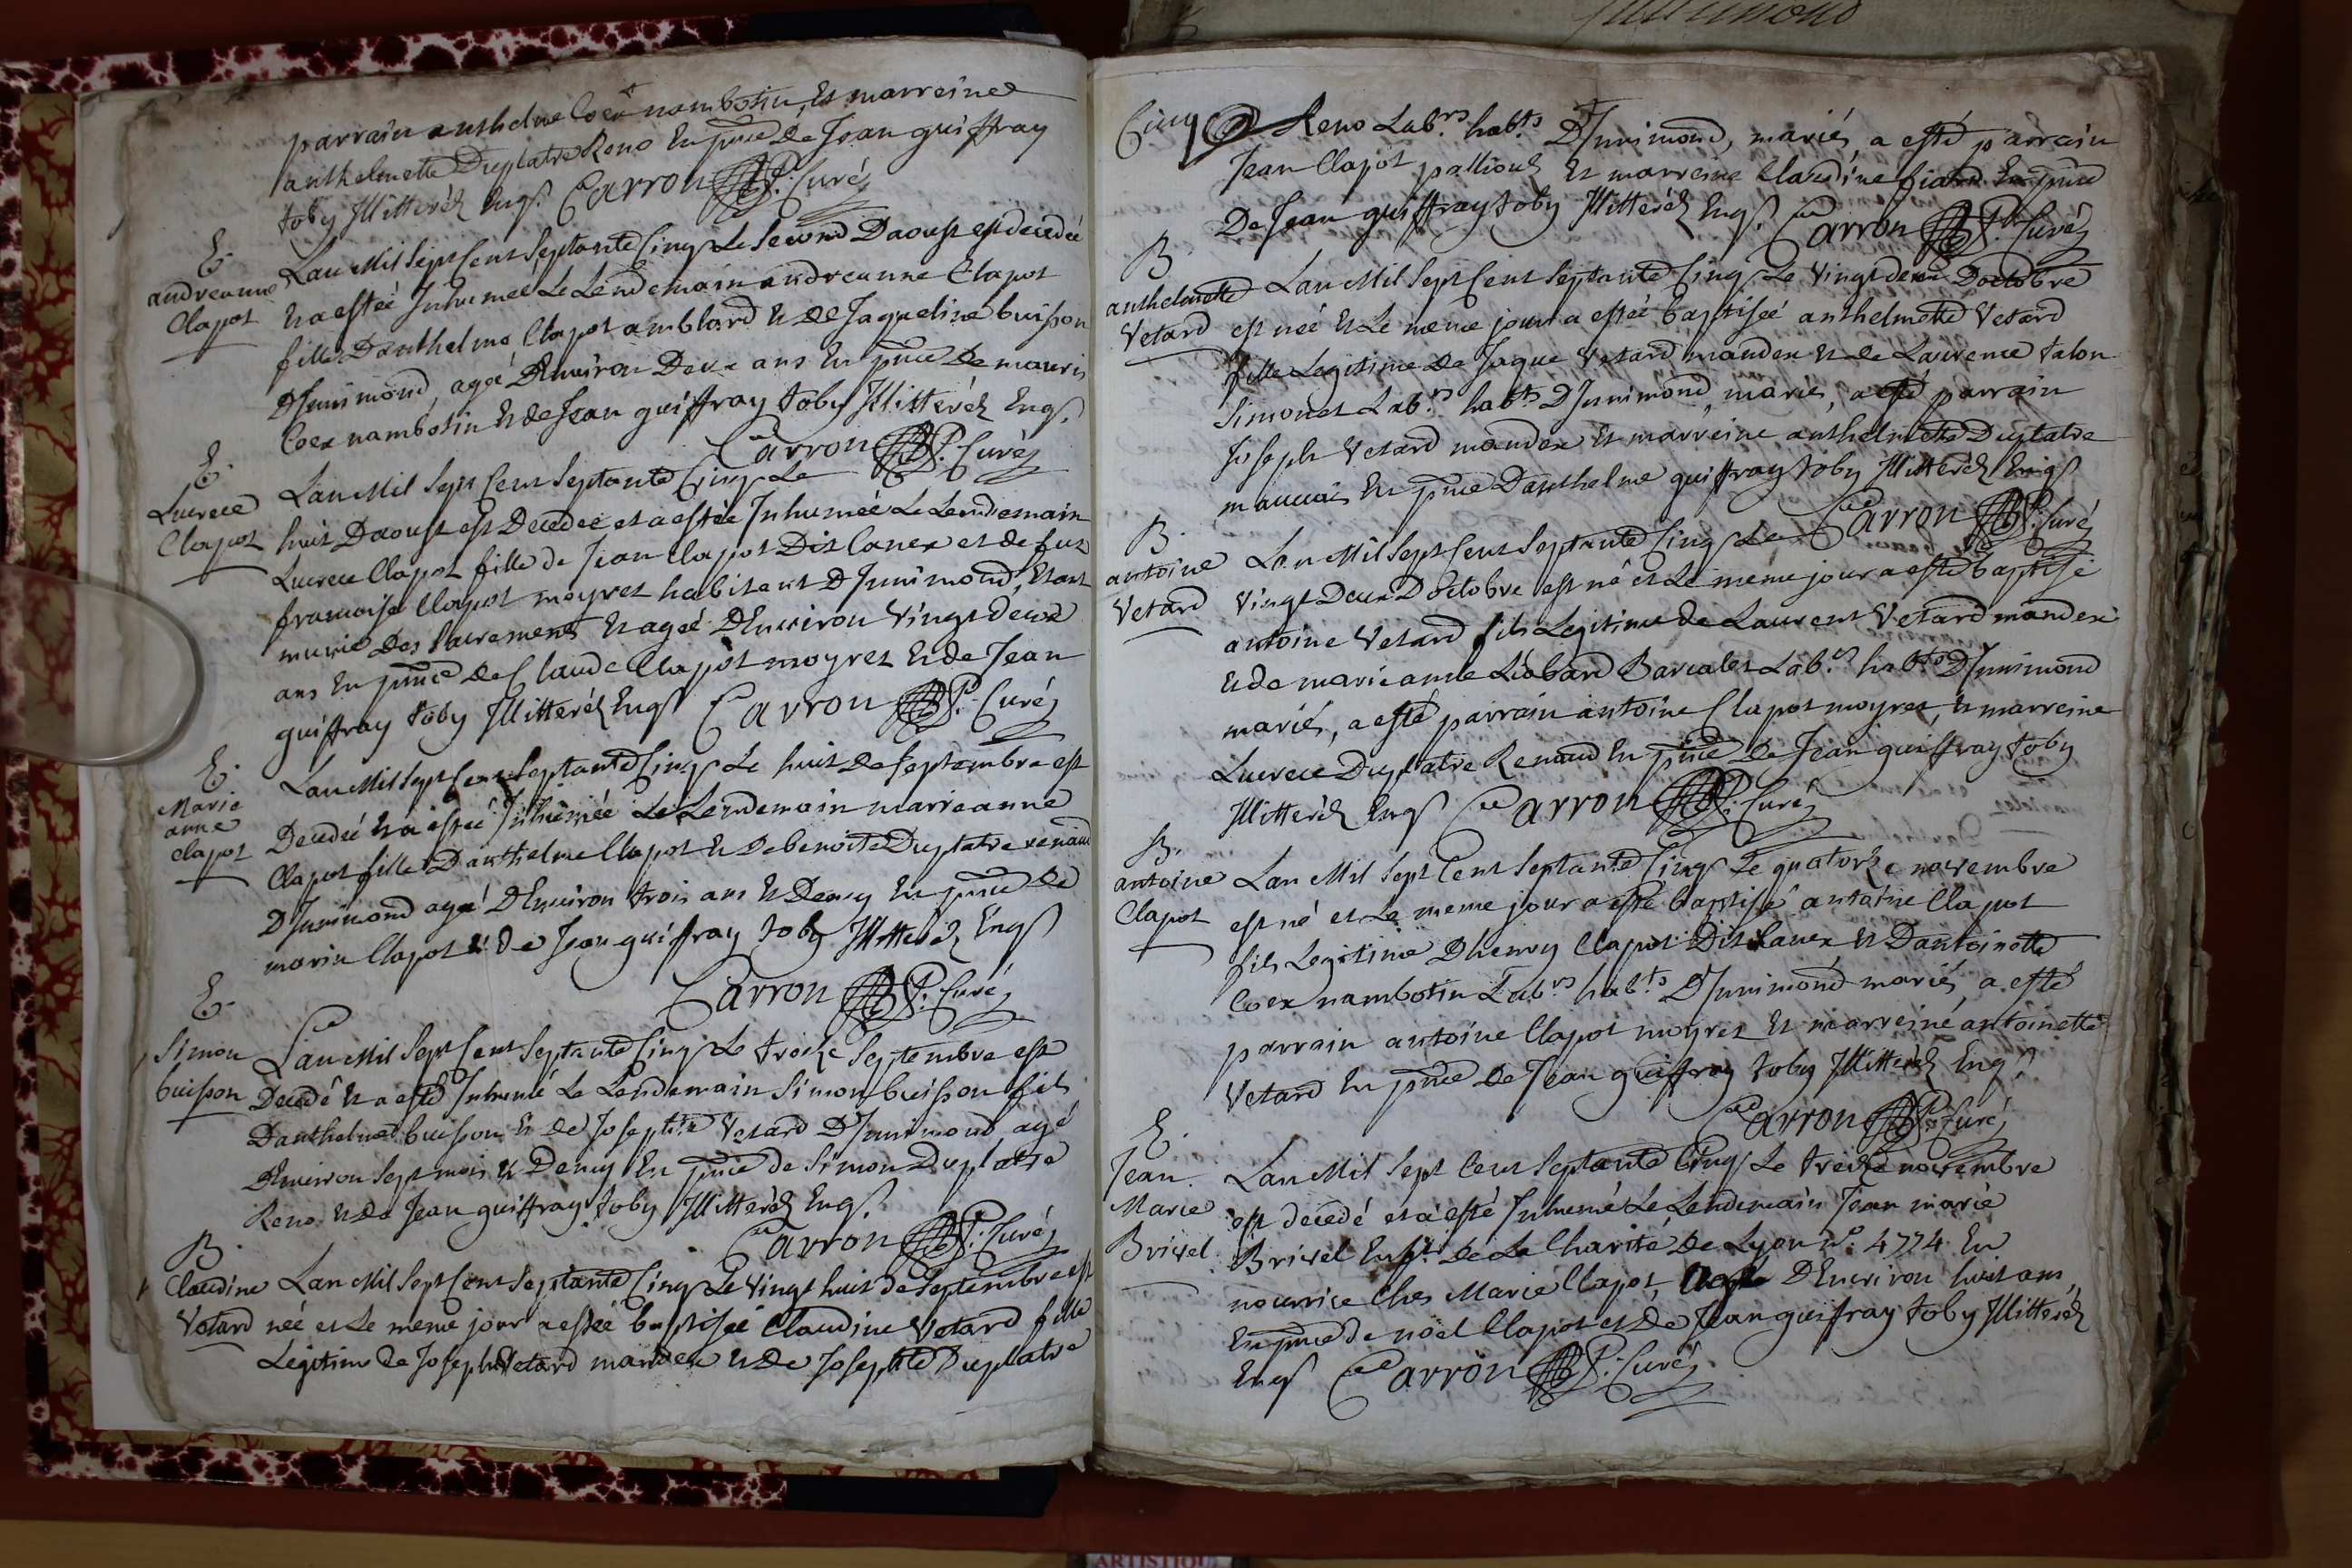 parrain anthelme Coex nambotin, Et marreine
anthelmette Duplatre Reno En pnce de Jean guiffray
toby Illitteréz Enqs. Carron P. Curé
E.
andreanne
Clapot
Lan Mil Sept Cent Septante Cinq Le Second Daoust est decedée
Et a estée Inhumée Le Lendemain andreanne Clapot
fille Danthelme Clapot amblard Et de Jaqueline buisson
DIzinimond, ageé DEnviron Deux ans En pnce De mauris
Coex nambotin Et de Jean guiffray toby Illitteréz Enqs.
Carron P. Curé
E.
Lucrece
Clapot
Lan Mil Sept Cent Septante Cinq Le
huit Daoust est Decedeé et a estée Inhumée Le Lendemain
Lucrece Clapot fille de Jean Clapot Dit Canex et de fut
francoise Clapot moyret habitant DIzinimond Etant
munie Des Sacrements Et ageé DEnviron Vingt deux
ans En pnce de Claude Clapot moyret Et de Jean
guiffray toby Illitteréz Enqs Carron P. Curé
E.
Marie
anne
Clapot
Lan Mil Sept Cent Septante Cinq Le huit de Septembre est
Decedeé Et a estée Inhumée Le Lendemain marieanne
Clapot fille Danthelme Clapot Et De benoite Duplatre renaud
DIzinimond ageé DEnviron trois ans Et Demy En pnce de
marin Clapot Et de Jean guiffray toby Illitteréz Enqs
Carron P. Curé
E.
Simon
buisson
Lan Mil Sept Cent Septante Cinq Le treize Septembre est
Decedé Et a esté Inhumé Le Lendemain Simon buisson fils
Danthelme buisson Et de Josephte Vetard DIzinimond agé
DEnviron Sept mois Et Demy En pnce de Simon Duplatre
Reno Et de Jean guiffray toby Illitteréz Enqs.
Carron P. Curé
B.
Claudine
Vetard
Lan Mil Sept Cent Septante Cinq Le Vingt huit de Septembre est
née et Le meme jour a estée baptisée Claudine Vetard fille
Legitime de Joseph Vetard mandex Et de Josephte Duplatre
Cinq
Reno Labrs. habts DIzinimond, mariés, a esté parrain
Jean Clapot pallioud Et marreine Claudine fiard En pnce
De Jean guiffray toby Illitteréz Enqs. Carron P. Curé
B.
anthelmette
Vetard
Lan Mil Sept Cent Septante Cinq Le Vingt deux Doctobre
est née Et Le meme jour a estée baptisée anthelmette Vetard
fille Legitime de Jaque Vetard mandex Et de Laurence talon
Simonet Labrs habts DIzinimond, mariés, a esté parrain
Joseph Vetard mandex Et marreine anthelmette Duplatre
mauvais En pnce Danthelme guiffray toby Illitteréz Enqs
Carron P. Curé
B.
antoine
Vetard
Lan Mil Sept Cent Septante Cinq Le
Vingt Deux Doctobre est né et Le meme jour a esté baptisé
antoine Vetard fils Legitime de Laurent Vetard mandex
Et de marieanne Liobard Barcalet Labrs habts DIzinimond
mariés, a esté parrain antoine Clapot moyret, Et marreine
Lucrece Duplatre Renaud En pnce de Jean guiffray toby
Illitteréz Enqs Carron P. Curé
B.
antoine
Clapot
Lan Mil Sept Cent Septante Cinq Le quatorze novembre
est né et Le meme jour a esté baptisé antoine Clapot
fils Legitime Dhenry Clapot Dit Canex Et Dantoinette
Coex nambotin Labrs habts DIzinimond mariés, a esté
parrain antoine Clapot moyret Et marreine antoinette
Vetard En pnce de Jean guiffray toby Illitteréz Enqs.
Carron P. Curé
E.
Jean
Marie
Brivel
Lan Mil Sept Cent Septante Cinq Le treize novembre
est decedé et a esté Inhumé Le Lendemain Jean marie
Brivel Enft de La Charité de Lyon No. 4774 En
nourrice Ches Marie Clapot, agé DEnviron huit ans,
En pnce de noël Clapot et De Jean guiffray toby Illitteréz
Enqs Carron P. Curé
ARTISTIQU